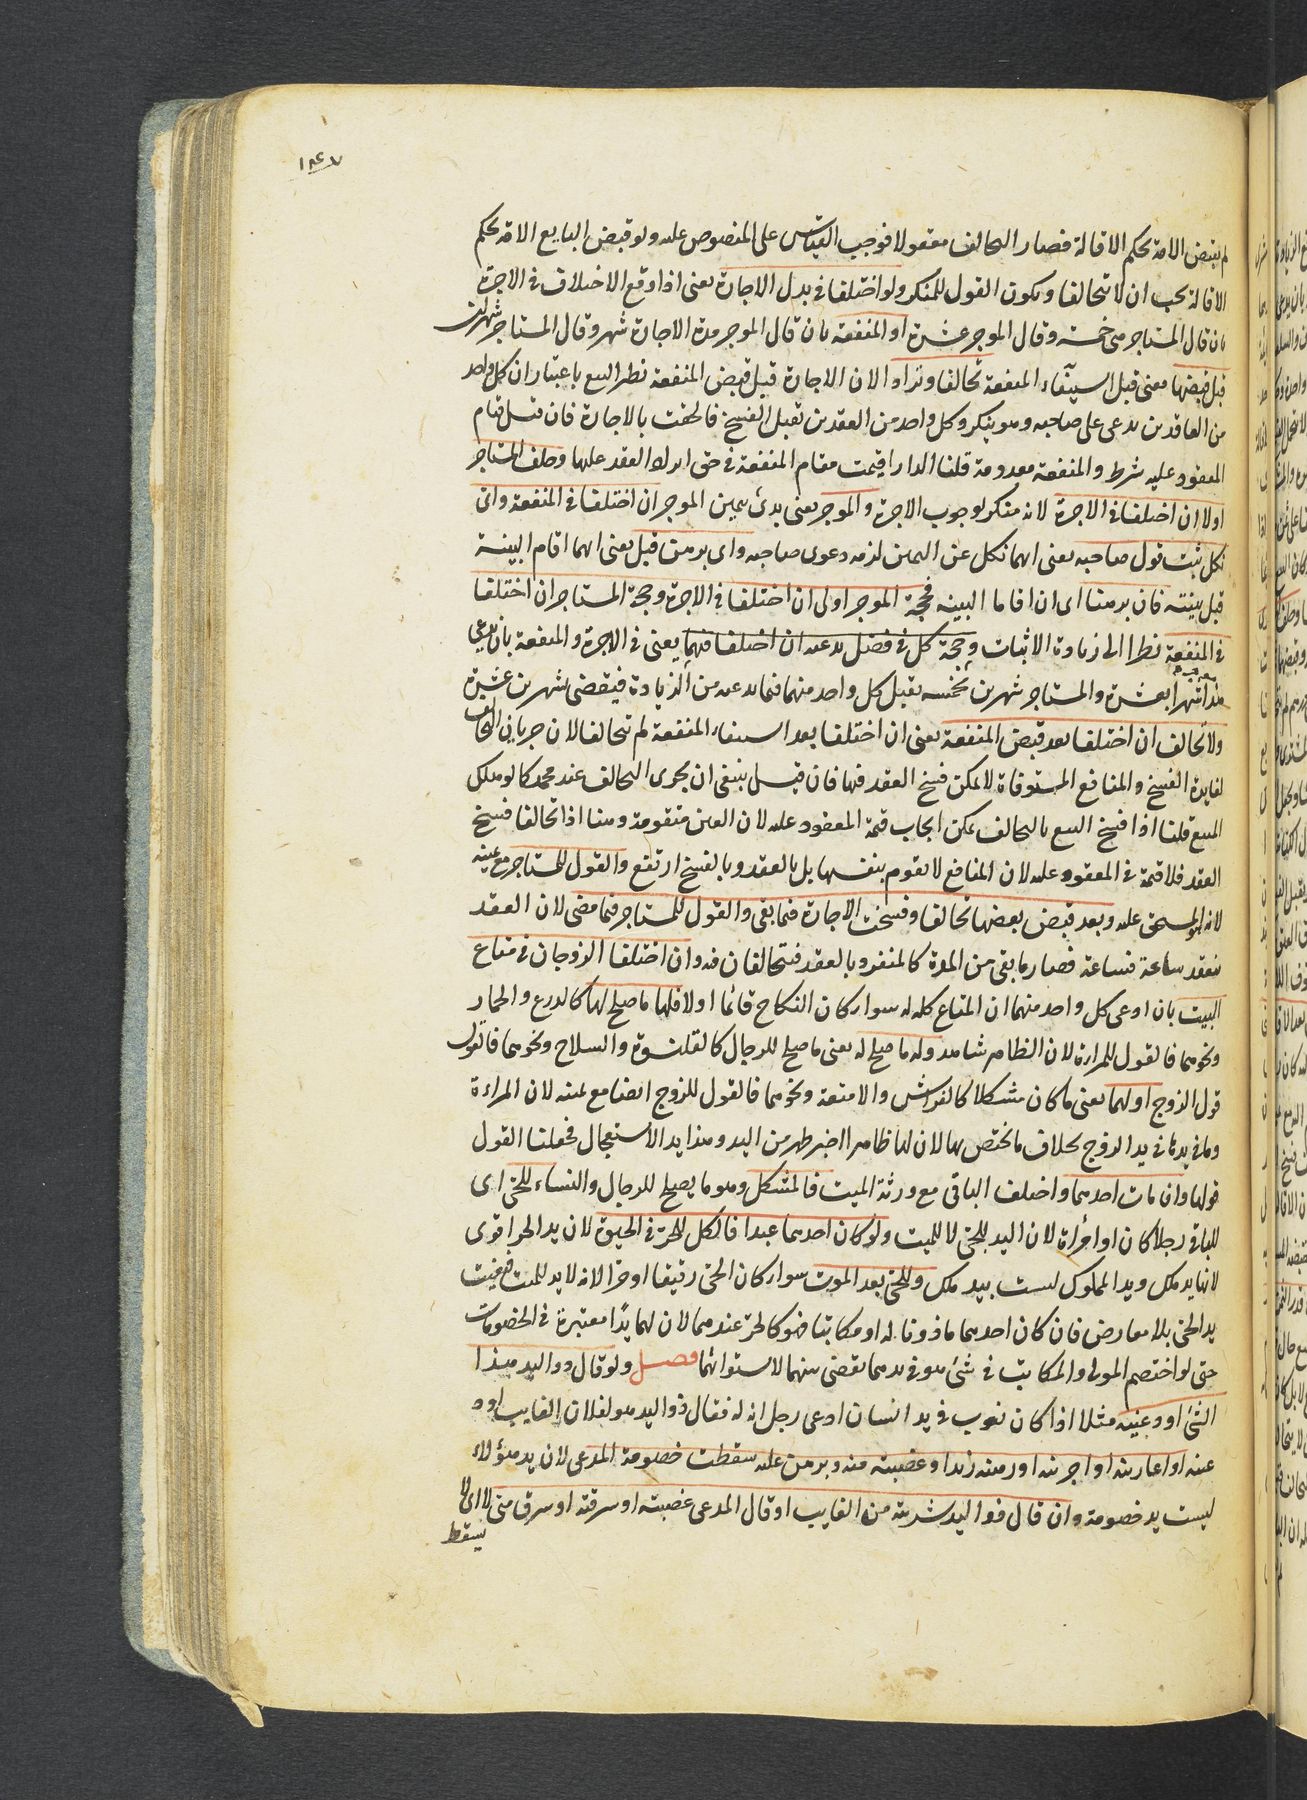 ١٤٧
لم يقبض الامة بحكم الاقالة فصار التحالف معقولا فوجب القياس على المنصوص عليه ولو قبض البايع الامة بحكم
الاقالة يجب ان لا يتحالفا ويكون القول للمنكر ولو اختلفا في بدل الاجارة يعنى اذا وقع الاختلاف في الاجرة
بان قال المستاجر هى خمسة وقال الموجر عشرة او المنفعة بان قال الموجر مدة الاجارة شهر وقال المستاجر شهران
قبل قبضها يعنى قبل استيفاء المنفعة تحالفا وترادا لان الاجارة قبل قبض المنفعة نظير البيع باعتبار ان كل واحد
من العاقدين يدعى على صاحبه وهو ينكر وكل واحد من العقدين يقبل الفسخ فالحقت بالاجارة فان قيل قيام
المعقود عليه شرط والمنفعة معدومة قلنا الدار اقيمت مقام المنفعة في حق ايراد العقد عليها وحلف المستاجر
اولا ان اختلفا في الاجرة لانه منكر لوجوب الاجرة والموجر يعنى بدئ بيمين الموجر ان اختلفا في المنفعة واى
نكل ثبت قول صاحبه يعنى ايهما نكل عن اليمين لزمه دعوى صاحبه واى برهن قبل يعنى ايهما اقام البينة
قبل بينته فان برهنا اى ان اقاما البينة فحجة الموجر اولى ان اختلفا في الاجرة وحجة المستاجر ان اختلفا
في المنفعة نظرا الى زيادة الاثبات وحجة كل في فضل يدعيه ان اختلفا فيهما يعنى في الاجرة والمنفعة بان يدعى
هذا شهرا بعشرة والمستاجر شهرين بخمسة يقبل كل واحد منهما فيما يدعيه من الزيادة فيقضى بشهرين عشرة
ولا تحالف ان اختلفا بعد قبض المنفعة يعنى ان اختلفا بعد استيفاء المنفعة لم يتحالفا لان جريان التحالف
لفايدة الفسخ والمنافع المستوفاة لا يمكن فسخ العقد فيها فان قيل ينبغى ان يجرى التحالف عند محمد كما لو هلك
المبيع قلنا اذا فسخ البيع بالتحالف يمكن ايجاب قيمة المعقود عليه لان العين متقومة وهنا اذا تحالفا فسخ
العقد فلا قيمة في المعقود عليه لان المنافع لا تقوم بنفسها بل بالعقد وبالفسخ ارتفع والقول للمستاجر مع يمينه
لانه المستحق عليه وبعد قبض بعضها تحالفا وفسخت الاجارة فيما بقى والقول للمستاجر فيما مضى لان العقد
ينعقد ساعة فساعة فصار ما بقى من المدة كالمنفرد بالعقد فيتحالفان فيه وان اختلفا الزوجان في متاع
البيت بان ادعى كل واحد منهما ان المتاع كله له سواء كان النكاح قائما اولا فلها ما صلح لها كالدرع والخمار
ونحوهما فالقول للمراة لان الظاهر شاهد وله ما صلح له يعنى ما صلح للرجال كالقلنسوة والسلاح ونحوهما فالقول
قول الزوج او لهما يعنى ما كان مشكلا كالفراش والامتعة ونحوهما فالقول للزوج ايضا مع يمينه لان المراءة
وما في يدها في يد الزوج بخلاف ما يختص بها لان لها ظاهرا اخر اظهر من اليد وهذا يد الاستعمال فجعلنا القول
قولها وان مات احدهما واختلف الباقى مع ورثة الميت فالمشكل وهو ما يصلح للرجال والنساء للحى اى
للباقى رجلا كان او امراة لان اليد للحى لا للميت ولو كان احدهما عبدا فالكل للحر في الحيوة لان يد الحر اقوى
لانها يد ملك ويد المملوك ليست بيد ملك وللحى بعد الموت سواء كان الحى رقيقا او حرا لانه لا يد للميت فبقيت
يد الحى بلا معارض فان كان احدهما ماذونا له او مكاتبا فهو كالحر عندهما لان لهما يدا معتبرة في الخصومات
حتى لو اختصم المولى والمكاتب في شئ هو في يدهما يقضى بينهما لاستوائهما فصل ولو قال ذو اليد هذا
الشئ اودعنيه مثلا اذا كان ثوب في يد انسان ادعى رجل انه له فقال ذو اليد هو لفلان الغايب اود
عنيه او اعارنيه او اجرنيه او رهننيه زيد او غصبته منه وبرهن عليه سقطت خصومة المدعى لان يد هؤلاء
ليست يد خصومة وان قال ذو اليد شريته من الغايب او قال المدعى غصبته او سرقته او سرق منى لا اى لا
يسقط